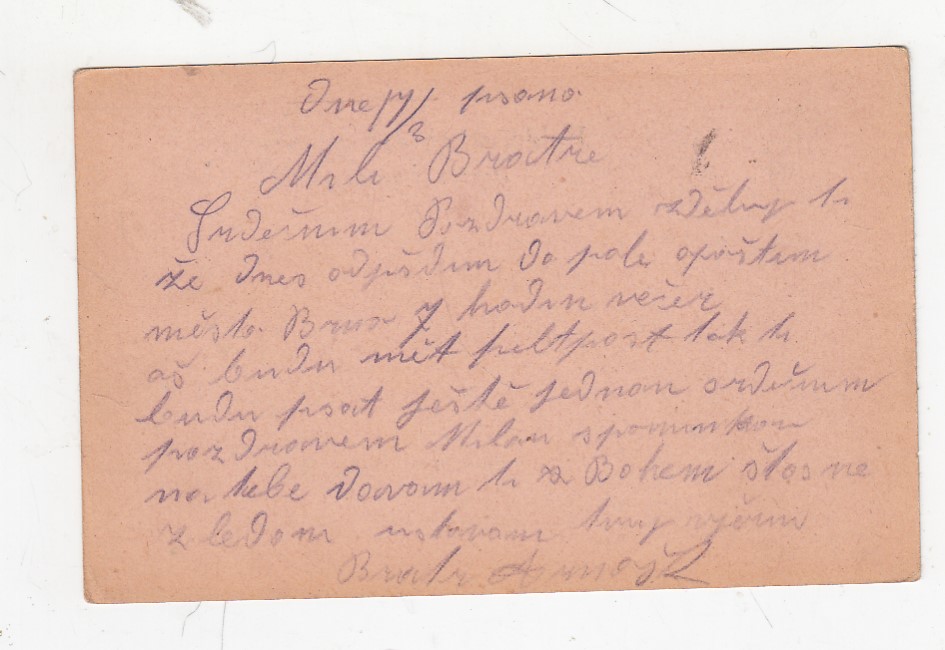 Dne 17/3 psano
Mili Bratre
Srdečnim Pozdravem zděluy ti
že dnes odjíšdim do pole opoštim
město Brno 7 hodin večer
aš budu mět feltpost tak ti
budu psat ještě jednou srdečnim
pozdravem Milou spominkou
na tebe davam ti z Bohem štasne
z ledom ustavam tvuy
Bratr Arnošt